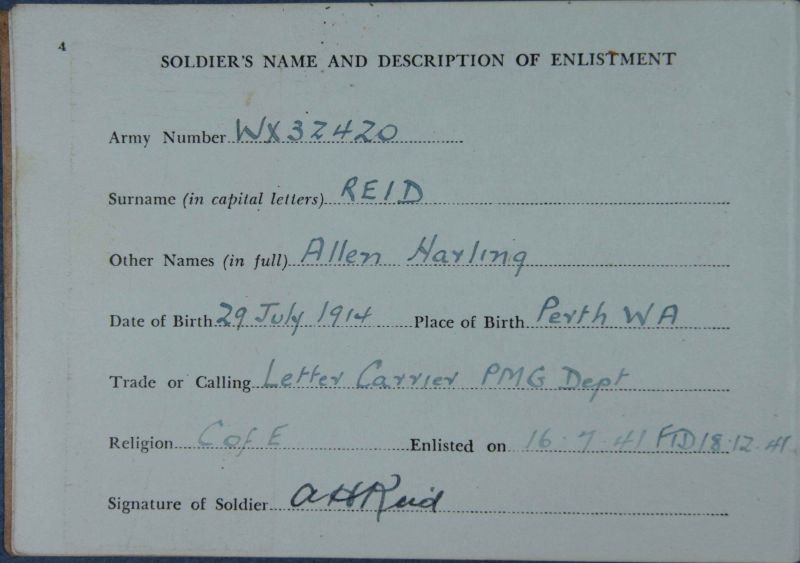 4
SOLDIER'S NAME AND DESCRIPTION OF ENLISTMENT
Army Number WX32420
Surname (in capital letters) REID
Other Names (in full) Allen Harling
Date of Birth 29 July 1914 Place of Birth Perth WA
Trade or Calling Letter Carrier PMG Dept
Religion C of E Enlisted on 16.7.41 FTD 18.12.41
Signature of Soldier AHReid